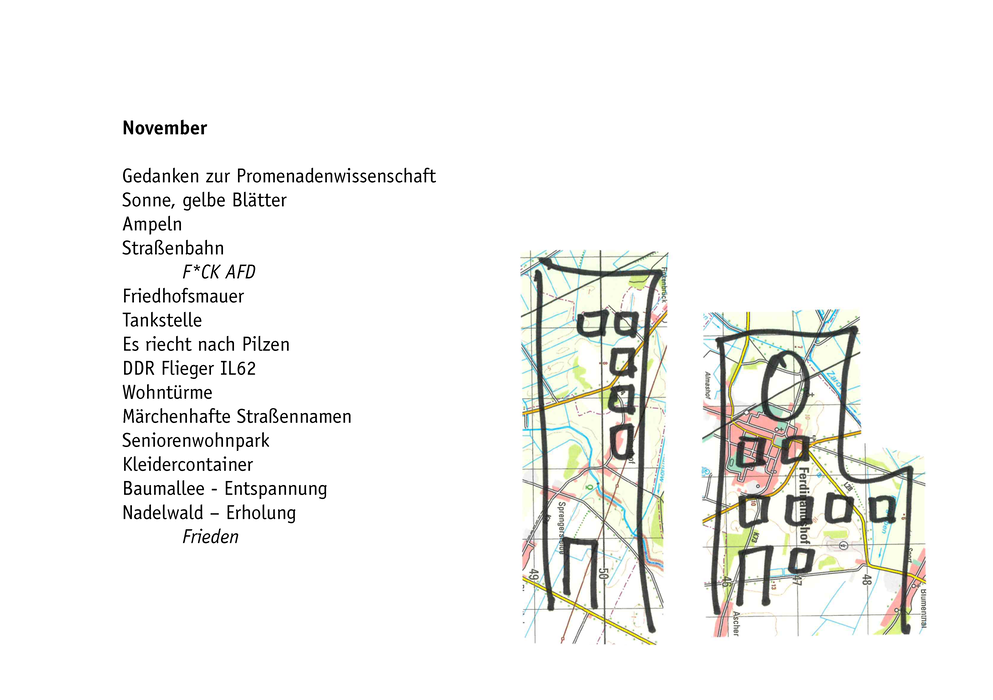 November
Gedanken zur Promenadenwissenschaft
Sonne, gelbe Blätter
Ampeln
Straßenbahn
F*CK AFD
Friedhofsmauer
Tankstelle
Es riecht nach Pilzen
DDR Flieger IL62
Wohntürme
Märchenhafte Straßennamen
Seniorenwohnpark
Kleidercontainer
Baumallee - Entspannung
Nadelwald – Erholung
Frieden
49
50
Almashof
L28
46
47
48
Ascher
Blumenthal